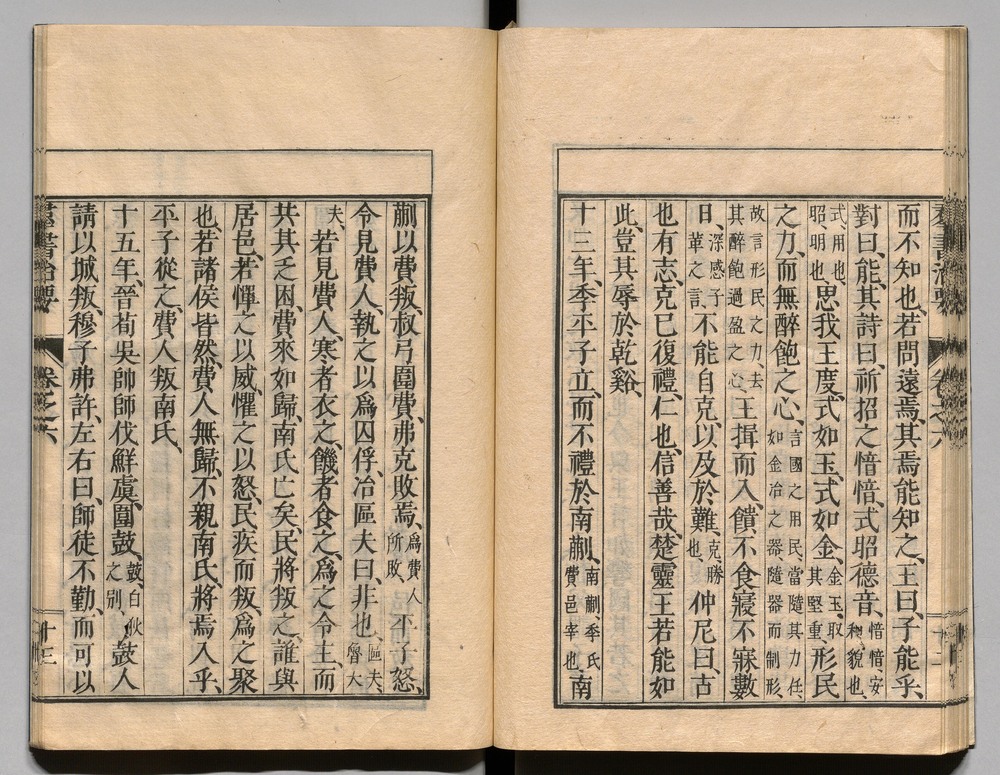 而不知也、若問遠焉、其焉能知之、王曰、子能乎、
對曰、能、其詩曰、祈招之愔愔、式昭德音、愔愔、安和貌也、
式、用也、昭、明也、思我王度、式如玉、式如金、金玉、取其堅重、形民
之力、而無醉飽之心、言國之用民、當隨其力任、如金冶之器、隨器而制形、
故言形民之力、去其醉飽過盈之心、王揖而入、饋不食、寢不寐、數
日、深感子革之言、不能自克、以及於難、克、勝也、仲尼曰、古
也有志、克己復禮、仁也、信善哉、楚靈王若能如
此、豈其辱於乾谿、
十三年、季平子立、而不禮於南蒯、南蒯、季氏費邑宰也、南
羣書治要 卷之六 十二
蒯以費叛、叔弓圍費、弗克敗焉、爲費人所敗、平子怒、
令見費人、執之以爲囚俘、冶區夫曰、非也、區夫、魯大
夫、若見費人、寒者衣之、饑者食之、爲之令主、而
共其乏困、費來如歸、南氏亡矣、民將叛之、誰與
居邑、若憚之以威、懼之以怒、民疾而叛、爲之聚
也、若諸侯皆然、費人無歸、不親南氏、將焉入乎、
平子從之、費人叛南氏、
十五年、晉荀吳帥師伐鮮虞、圍鼓、鼓、白狄之別、鼓人
請以城叛、穆子弗許、左右曰、師徒不勤、而可以
羣書治要 卷之六 十三